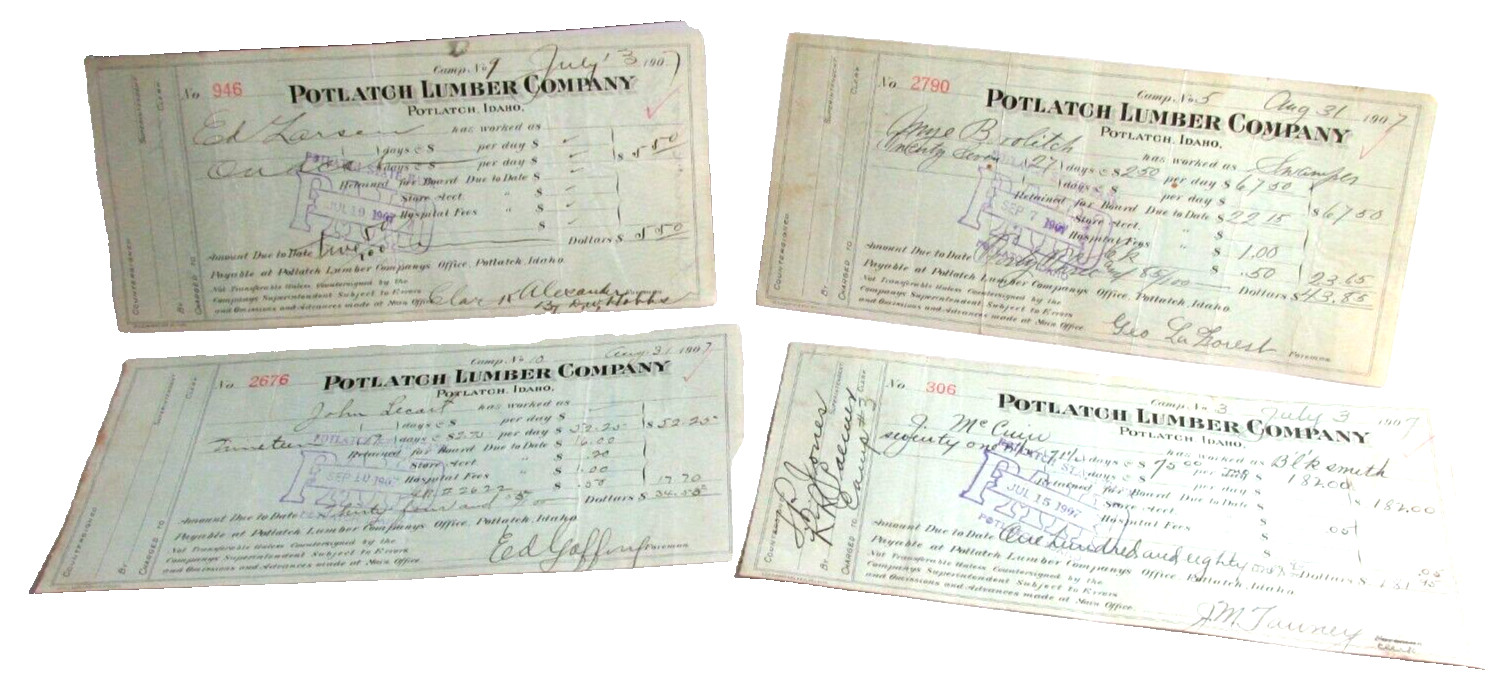 Camp. No 9 July 3 1907
No 946
POTLATCH LUMBER COMPANY
POTLATCH, IDAHO,
Ed Larsen has worked as
days @ $ per day $
days @ $ per day $ $ 5 50
Retained for Board Due to Date $
Store Acct. " $
Hospital Fees " $
$
Amount Due to Date five 50 Dollars $ 5 50
Payable at Potlatch Lumber Companys Office, Potlatch, Idaho.
Not Transferable Unless Countersigned by the
Companys Superintendent Subject to Errors
and Omissions and Advances made at Main Office
Clar K Alexander
By
COUNTERSIGNED
SUPERINTENDENT
BY
CLERK
CHARGED TO
JUL 19 1907
Camp. No 5 Aug 31 1907
No 2790
POTLATCH LUMBER COMPANY
POTLATCH, IDAHO,
has worked as Swamper
Twenty Seven 27 days @ $ 2 50 per day $ 67 50
days @ $ per day $ $ 67 50
Retained for Board Due to Date $ 22 15
Store Acct. " $
Hospital Fees " $ 1.00
$ .50 23 65
Amount Due to Date 85/100 Dollars $ 43.85
Payable at Potlatch Lumber Companys Office, Potlatch, Idaho.
Not Transferable Unless Countersigned by the
Companys Superintendent Subject to Errors
and Omissions and Advances made at Main Office
Geo La Forest Foreman
COUNTERSIGNED
SUPERINTENDENT
BY
CLERK
CHARGED TO
SEP 7 1907
Camp. No 10 Aug 31 1907
No 2676
POTLATCH LUMBER COMPANY
POTLATCH, IDAHO,
John Lecart has worked as
days @ $ per day $
Nineteen 19 days @ $ 2.75 per day $ 52.25 $ 52.25
Retained for Board Due to Date $ 16.00
Store Acct. " $ .20
Hospital Fees " $ 1.00
$ .50 17 70
Amount Due to Date Thirty four and Dollars $ 34.55
Payable at Potlatch Lumber Companys Office, Potlatch, Idaho
Not Transferable Unless Countersigned by the
Companys Superintendent Subject to Errors
and Omissions and Advances made at Main Office
Ed Gaffney Foreman
COUNTERSIGNED
SUPERINTENDENT
BY
CLERK
CHARGED TO
SEP 10 1907
Camp. No 3 July 3 1907
No 306
POTLATCH LUMBER COMPANY
POTLATCH, IDAHO,
J. McCuin has worked as Bl'k smith
seventy one days @ $ 75 00 per
days @ $ per day $ 182.00 $ 182.00
Retained for Board Due to Date $
Store Acct. $
Hospital Fees $
$
Amount Due to Date One hundred and eighty one Dollars $
Payable at Potlatch Lumber Companys Office, Potlatch, Idaho
Not Transferable Unless Countersigned by the
Companys Superintendent Subject to Errors
and Omissions and Advances made at Main Office
J.M. Tanney Clerk
COUNTERSIGNED
SUPERINTENDENT
BY
CLERK
CHARGED TO
Camp #3
JUL 15 1907